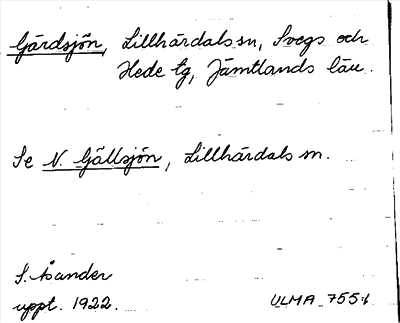 Gärdsjön, Lillhärdals sn, Svegs och
Hede tg, Jämtlands län.
Se N. Gällsjön, Lillhärdals sn.
S. Åsander
uppt. 1922.
ULMA 755:1